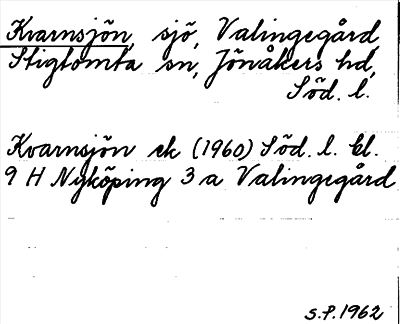 Kvarnsjön, sjö, Valingegård
Stigtomta sn, Jönåkers hd,
Söd. l.
Kvarnsjön ek (1960) Söd. l. bl.
9 H Nyköping 3 a Valingegård
S.P. 1962